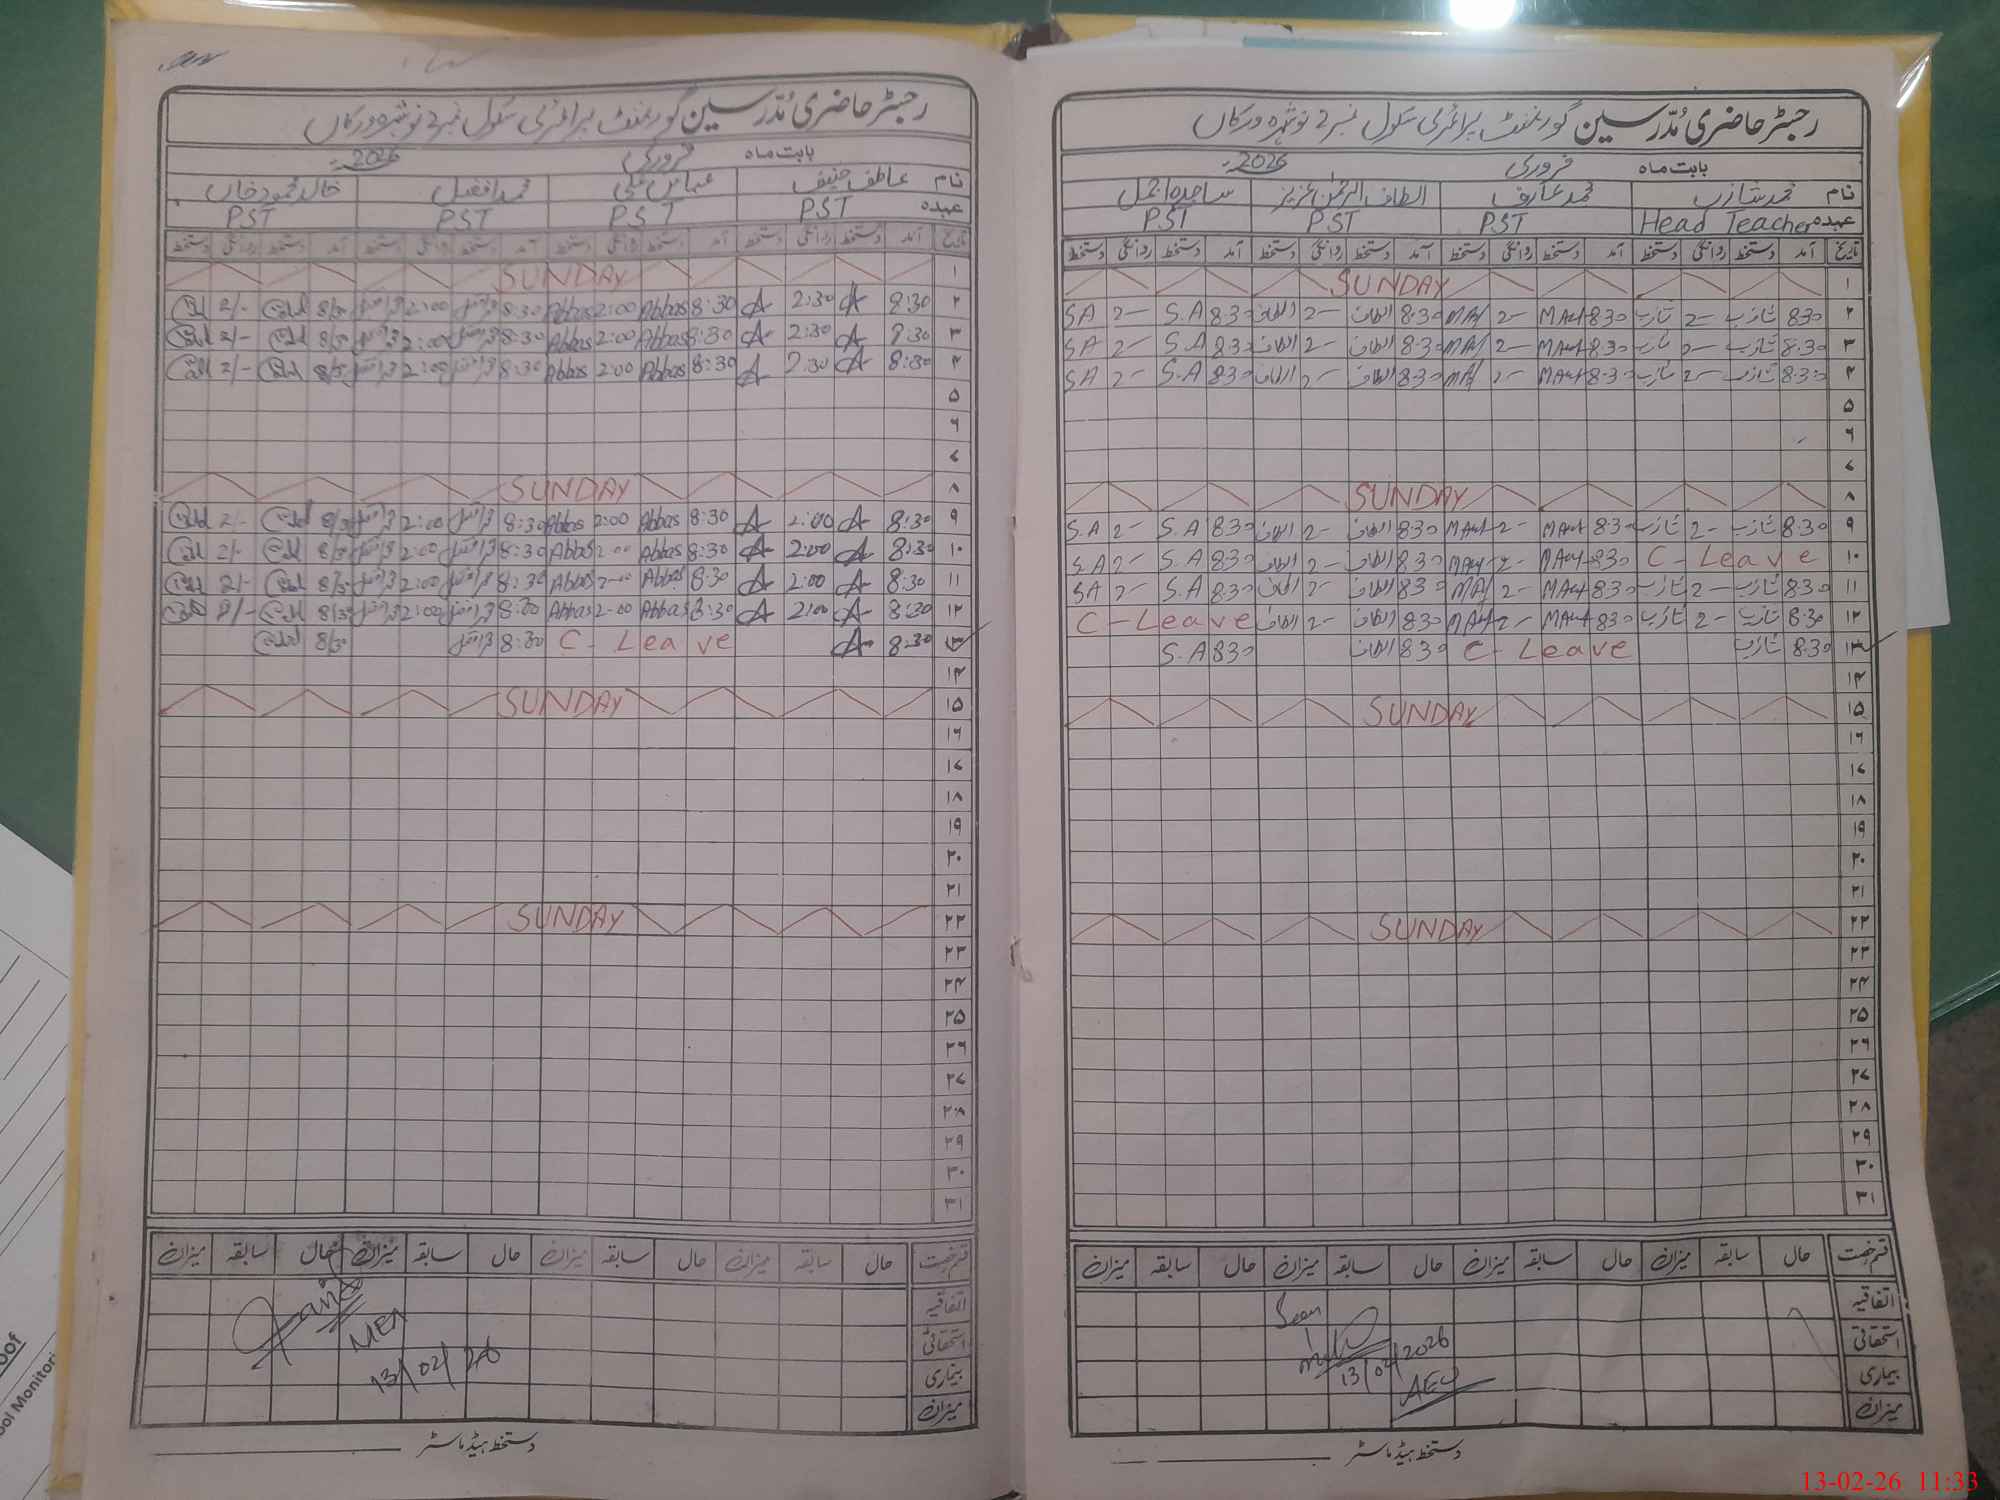 رجسٹر حاضری مُدّرسین گورنمنٹ پرائمری سکول نمبر 2 نوشہرہ ورکاں
بابت ماہ فروری 2026ء
نام عاطف حنیف عباس علی محمد افضل خالد محمود خاں
عہدہ PST PST PST PST
تاریخ آمد دستخط روانگی دستخط آمد دستخط روانگی دستخط آمد دستخط روانگی دستخط آمد دستخط روانگی دستخط
۱ SUNDAY
۲ 8:30 A 2:30 A 8:30 Abbas 2:00 Abbas 8:30 2:00 8/30 2/-
۳ 8:30 A 2:30 A 8:30 Abbas 2:00 Abbas 8:30 2:00 8/30 2/-
۴ 8:30 A 2:30 A 8:30 Abbas 2:00 Abbas 8:30 2:00 8/30 2/-
۵
۶
۷
۸ SUNDAY
۹ 8:30 A 2:00 A 8:30 Abbas 2:00 Abbas 8:30 2:00 8/30 2/-
۱۰ 8:30 A 2:00 A 8:30 Abbas 2:00 Abbas 8:30 2:00 8/30 2/-
۱۱ 8:30 A 2:00 A 8:30 Abbas 2:00 Abbas 8:30 2:00 8/30 2/-
۱۲ 8:30 A 2:00 A 8:30 Abbas 2:00 Abbas 8:30 2:00 8/30 2/-
۱۳ 8:30 A C - Leave 8:30 8/30
۱۴
۱۵ SUNDAY
۱۶
۱۷
۱۸
۱۹
۲۰
۲۱
۲۲ SUNDAY
۲۳
۲۴
۲۵
۲۶
۲۷
۲۸
۲۹
۳۰
۳۱
قسم رخصت حال سابقہ میزان حال سابقہ میزان حال سابقہ میزان حال سابقہ میزان
اتفاقیہ
استحقاقی
بیماری
میزان
MEA
13/02/26
دستخط ہیڈ ماسٹر
رجسٹر حاضری مُدّرسین گورنمنٹ پرائمری سکول نمبر 2 نوشہرہ ورکاں
بابت ماہ فروری 2026ء
نام محمد شازب محمد عارف الطاف الرحمٰن عزیز ساجدہ اجمل
عہدہ Head Teacher PST PST PST
تاریخ آمد دستخط روانگی دستخط آمد دستخط روانگی دستخط آمد دستخط روانگی دستخط آمد دستخط روانگی دستخط
۱ SUNDAY
۲ 8:30 شازب 2- شازب 8:30 MArf 2- MArf 8:30 الطاف 2- الطاف 8:30 S.A 2- SA
۳ 8:30 شازب 2- شازب 8:30 MArf 2- MArf 8:30 الطاف 2- الطاف 8:30 S.A 2- SA
۴ 8:30 شازب 2- شازب 8:30 MArf 2- MArf 8:30 الطاف 2- الطاف 8:30 S.A 2- SA
۵
۶
۷
۸ SUNDAY
۹ 8:30 شازب 2- شازب 8:30 MArf 2- MArf 8:30 الطاف 2- الطاف 8:30 S.A 2- S.A
۱۰ C - Leave 8:30 MArf 2- MArf 8:30 الطاف 2- الطاف 8:30 S.A 2- S.A
۱۱ 8:30 شازب 2- شازب 8:30 MArf 2- MArf 8:30 الطاف 2- الطاف 8:30 S.A 2- SA
۱۲ 8:30 شازب 2- شازب 8:30 MArf 2- MArf 8:30 الطاف 2- الطاف C - Leave
۱۳ 8:30 شازب C - Leave 8:30 الطاف 8:30 S.A
۱۴
۱۵ SUNDAY
۱۶
۱۷
۱۸
۱۹
۲۰
۲۱
۲۲ SUNDAY
۲۳
۲۴
۲۵
۲۶
۲۷
۲۸
۲۹
۳۰
۳۱
قسم رخصت حال سابقہ میزان حال سابقہ میزان حال سابقہ میزان حال سابقہ میزان
اتفاقیہ
استحقاقی
بیماری
میزان
Seen
13/02/2026
AEO
دستخط ہیڈ ماسٹر
13-02-26 11:33